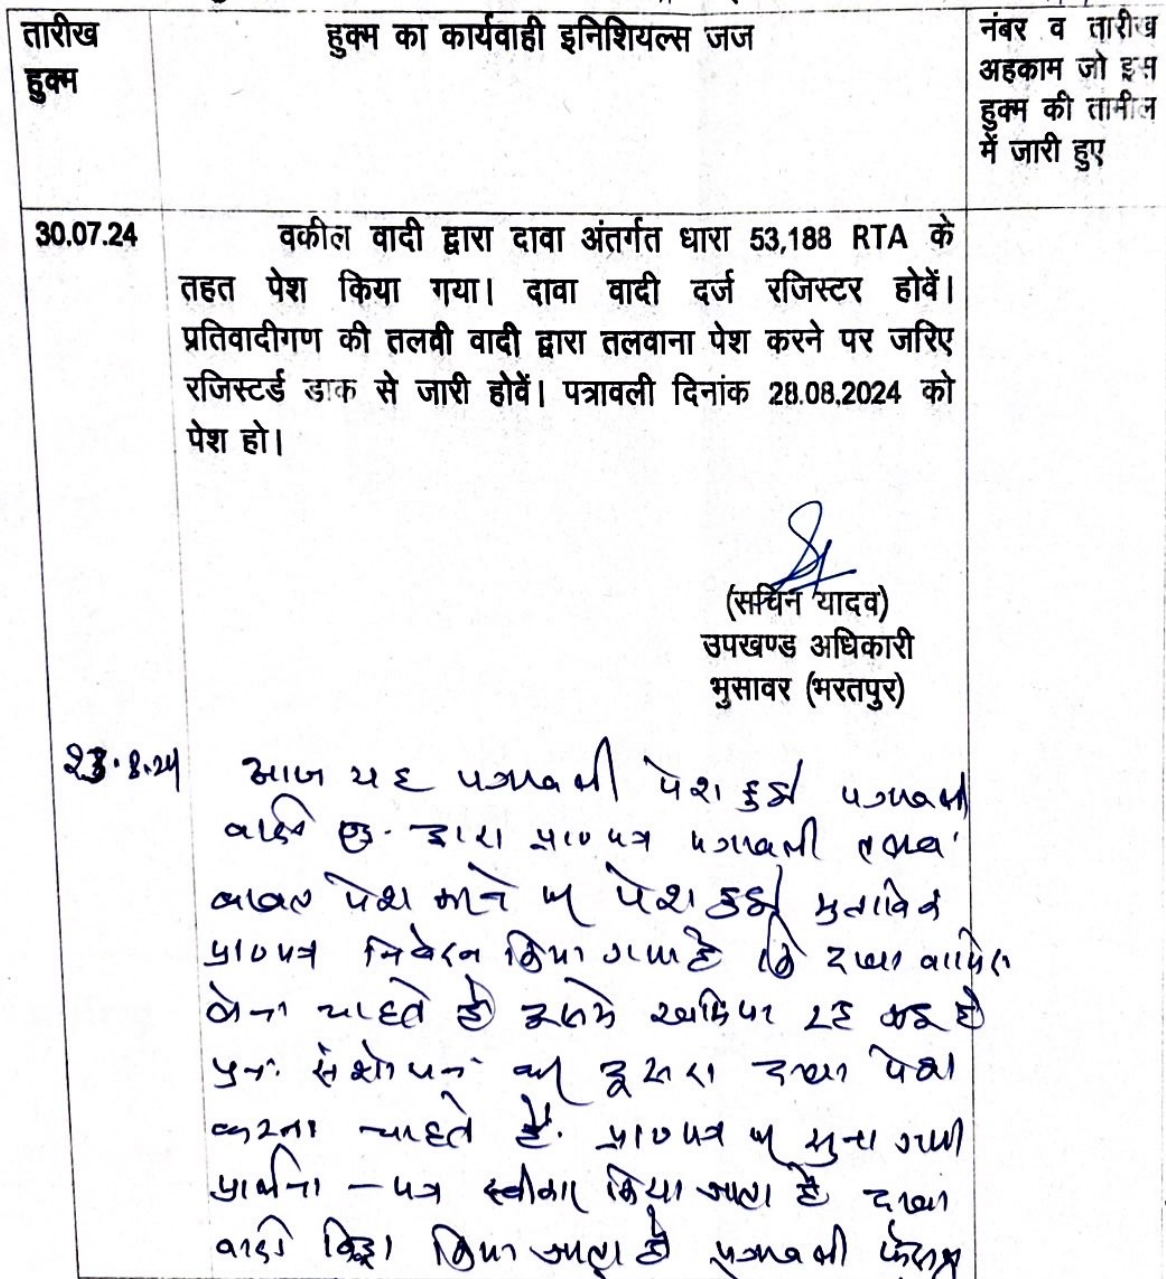 तारीख
हुक्म
हुक्म का कार्यवाही इनिशियल्स जज
नंबर व तारीख
अहकाम जो इस
हुक्म की तामील
में जारी हुए
30.07.24
वकील वादी द्वारा दावा अंतर्गत धारा 53,188 RTA के
तहत पेश किया गया। दावा वादी दर्ज रजिस्टर होवें।
प्रतिवादीगण की तलवी वादी द्वारा तलवाना पेश करने पर जरिए
रजिस्टर्ड डाक से जारी होवें। पत्रावली दिनांक 28.08.2024 को
पेश हो।
(सचिन यादव)
उपखण्ड अधिकारी
भुसावर (भरतपुर)
23.8.24
आज यह पत्रावली पेश हुई पत्रावली
वादी द्वारा प्रा०पत्र पत्रावली तलब
बाबत पेश करने पर पेश हुई मुताबिक
प्रा०पत्र निवेदन किया गया है कि दावा वापिस
लेना चाहते है इसमे खामियां रह गई है
पुनः संशोधन कर दूसरा दावा पेश
करना चाहते है. प्रा०पत्र पर सुना गया
प्रार्थना-पत्र स्वीकार किया जाता है दावा
वादी विड्रा किया जाता है पत्रावली फैसल